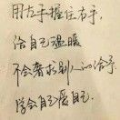 用左手握住右手,
给自己温暖
不会奢求别人的给予
学会自己爱自己.